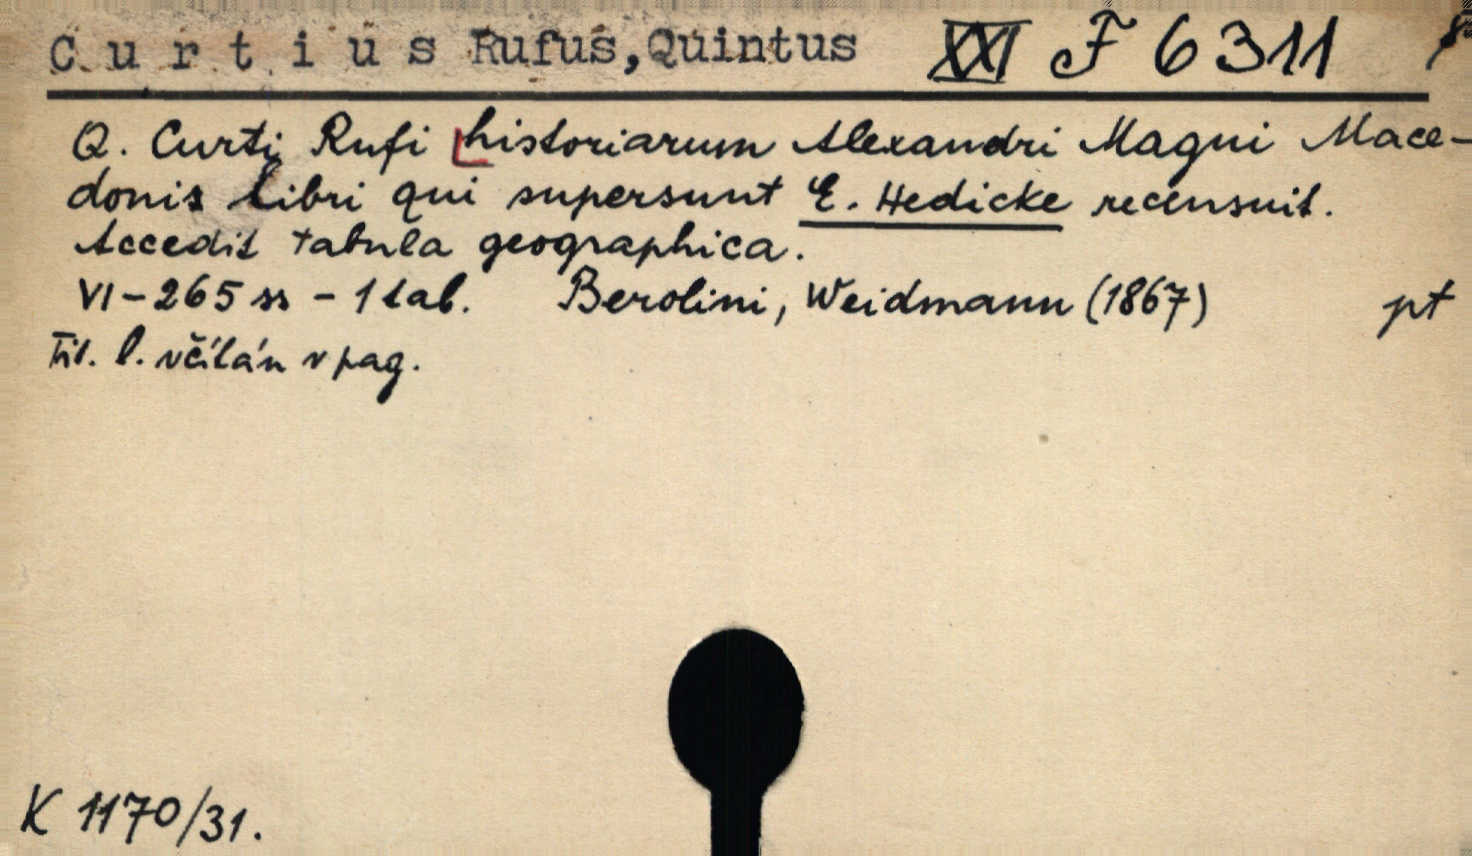 Curtius Rufus, Quintus XXI F 6311
Q. Curti Rufi historiarum Alexandri Magni Mace-
donis libri qui supersunt E. Hedicke recensuit.
Accedit tabula geographica.
VI-265 ss - 1 tab. Berolini, Weidmann (1867) pt
Tit. l. včítán v pag.
K 1170/31.